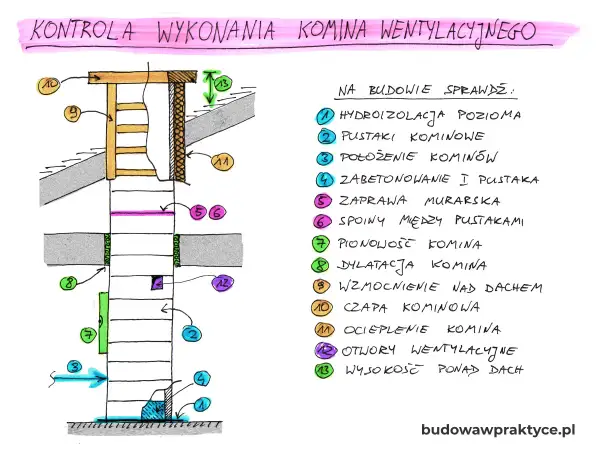 KONTROLA WYKONANIA KOMINA WENTYLACYJNEGO
NA BUDOWIE SPRAWDŹ:
1 HYDROIZOLACJA POZIOMA
2 PUSTAKI KOMINOWE
3 POŁOŻENIE KOMINÓW
4 ZABETONOWANIE I PUSTAKA
5 ZAPRAWA MURARSKA
6 SPOINY MIĘDZY PUSTAKAMI
7 PIONOWOŚĆ KOMINA
8 DYLATACJA KOMINA
9 WZMOCNIENIE NAD DACHEM
10 CZAPA KOMINOWA
11 OCIEPLENIE KOMINA
12 OTWORY WENTYLACYJNE
13 WYSOKOŚĆ PONAD DACH
10
13
9
11
5 6
8
12
7
2
3
4
1
budowawpraktyce.pl